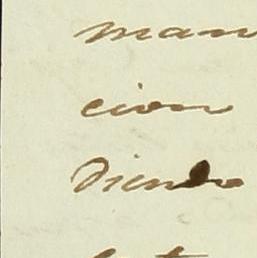 man
cion
diendo